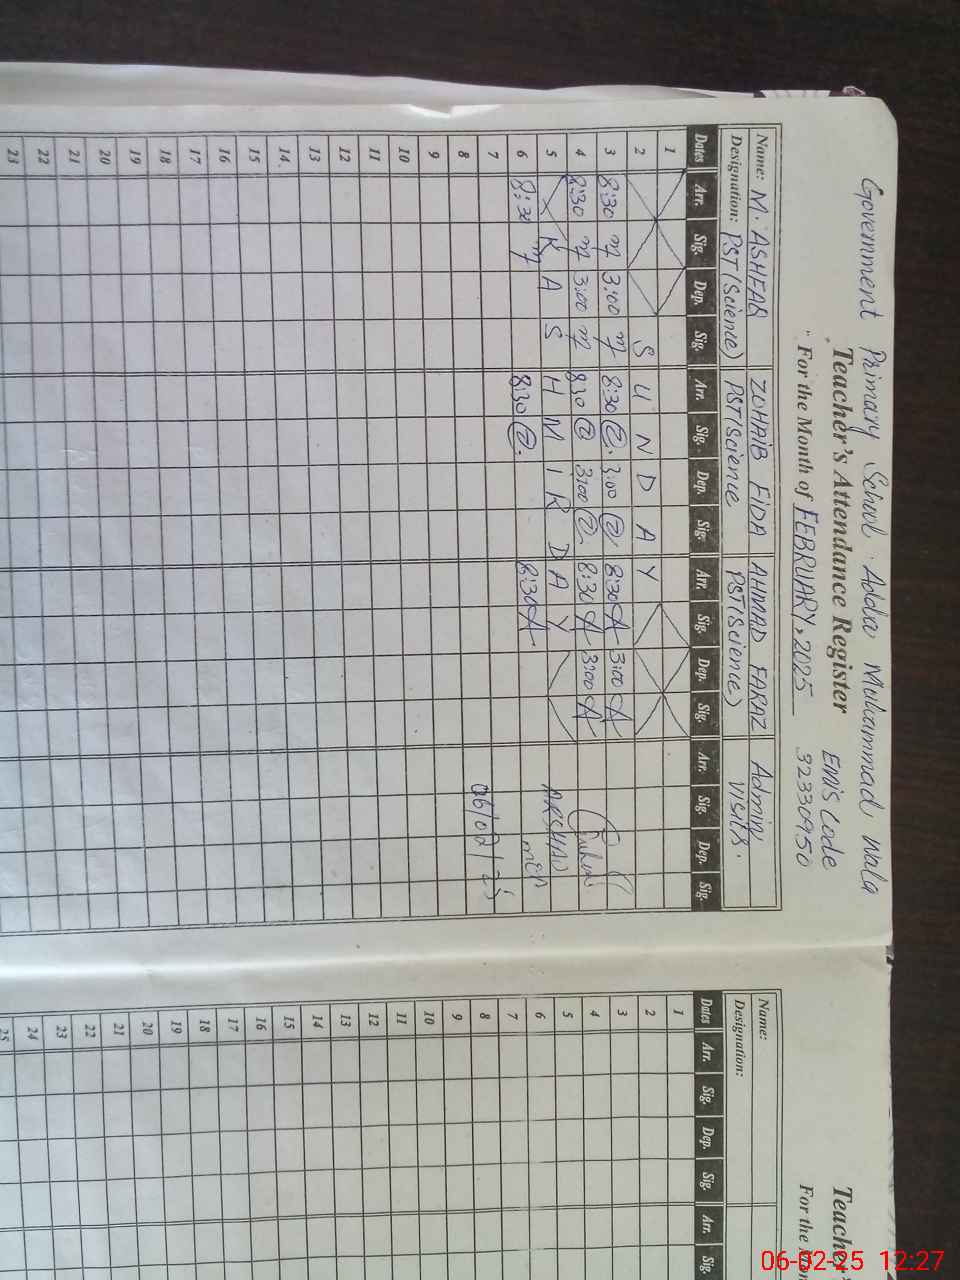 Government Primary School Adda Muhammad Wala
Teacher's Attendance Register
EMIS Code
32330950
For the Month of FEBRUARY, 2025
Name: M. ASHFAQ ZOHAIB FIDA AHMAD FARAZ Admin
Designation: PST(Science) PST(Science PST(Science) VISITS.
Dates Arr. Sig. Dep. Sig. Arr. Sig. Dep. Sig. Arr. Sig. Dep. Sig. Arr. Sig. Dep. Sig.
1
2 S U N D A Y
3 8:30 3:00 8:30 3:00 8:30 A 3:00 A
4 8:30 3:00 8:30 3:00 8:30 A 3:00 A
5 K A S H M I R D A Y ARSHAD
6 8:30 8:30 8:30 A
7 06/02/25
8
9
10
11
12
13
14
15
16
17
18
19
20
21
22
23
Teacher'
For the Mon
Name:
Designation:
Dates Arr. Sig. Dep. Sig. Arr. Sig.
1
2
3
4
5
6
7
8
9
10
11
12
13
14
15
16
17
18
19
20
21
22
23
24
25
06-02-25 12:27